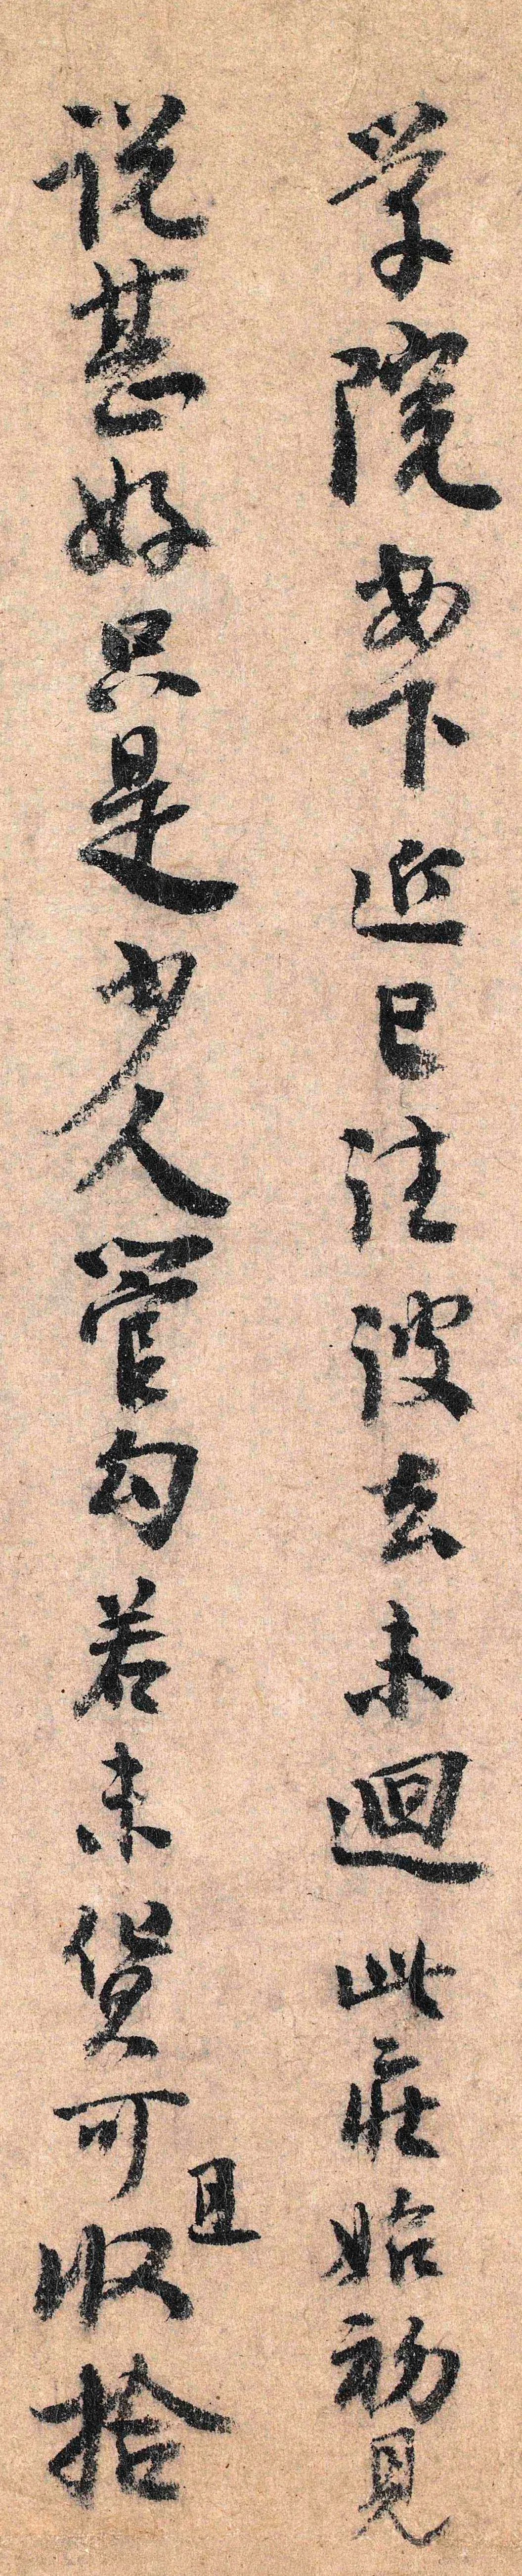 学院安下近已往彼去未迴此庄始初見
説甚好只是少人管勾若未貨可且收拾